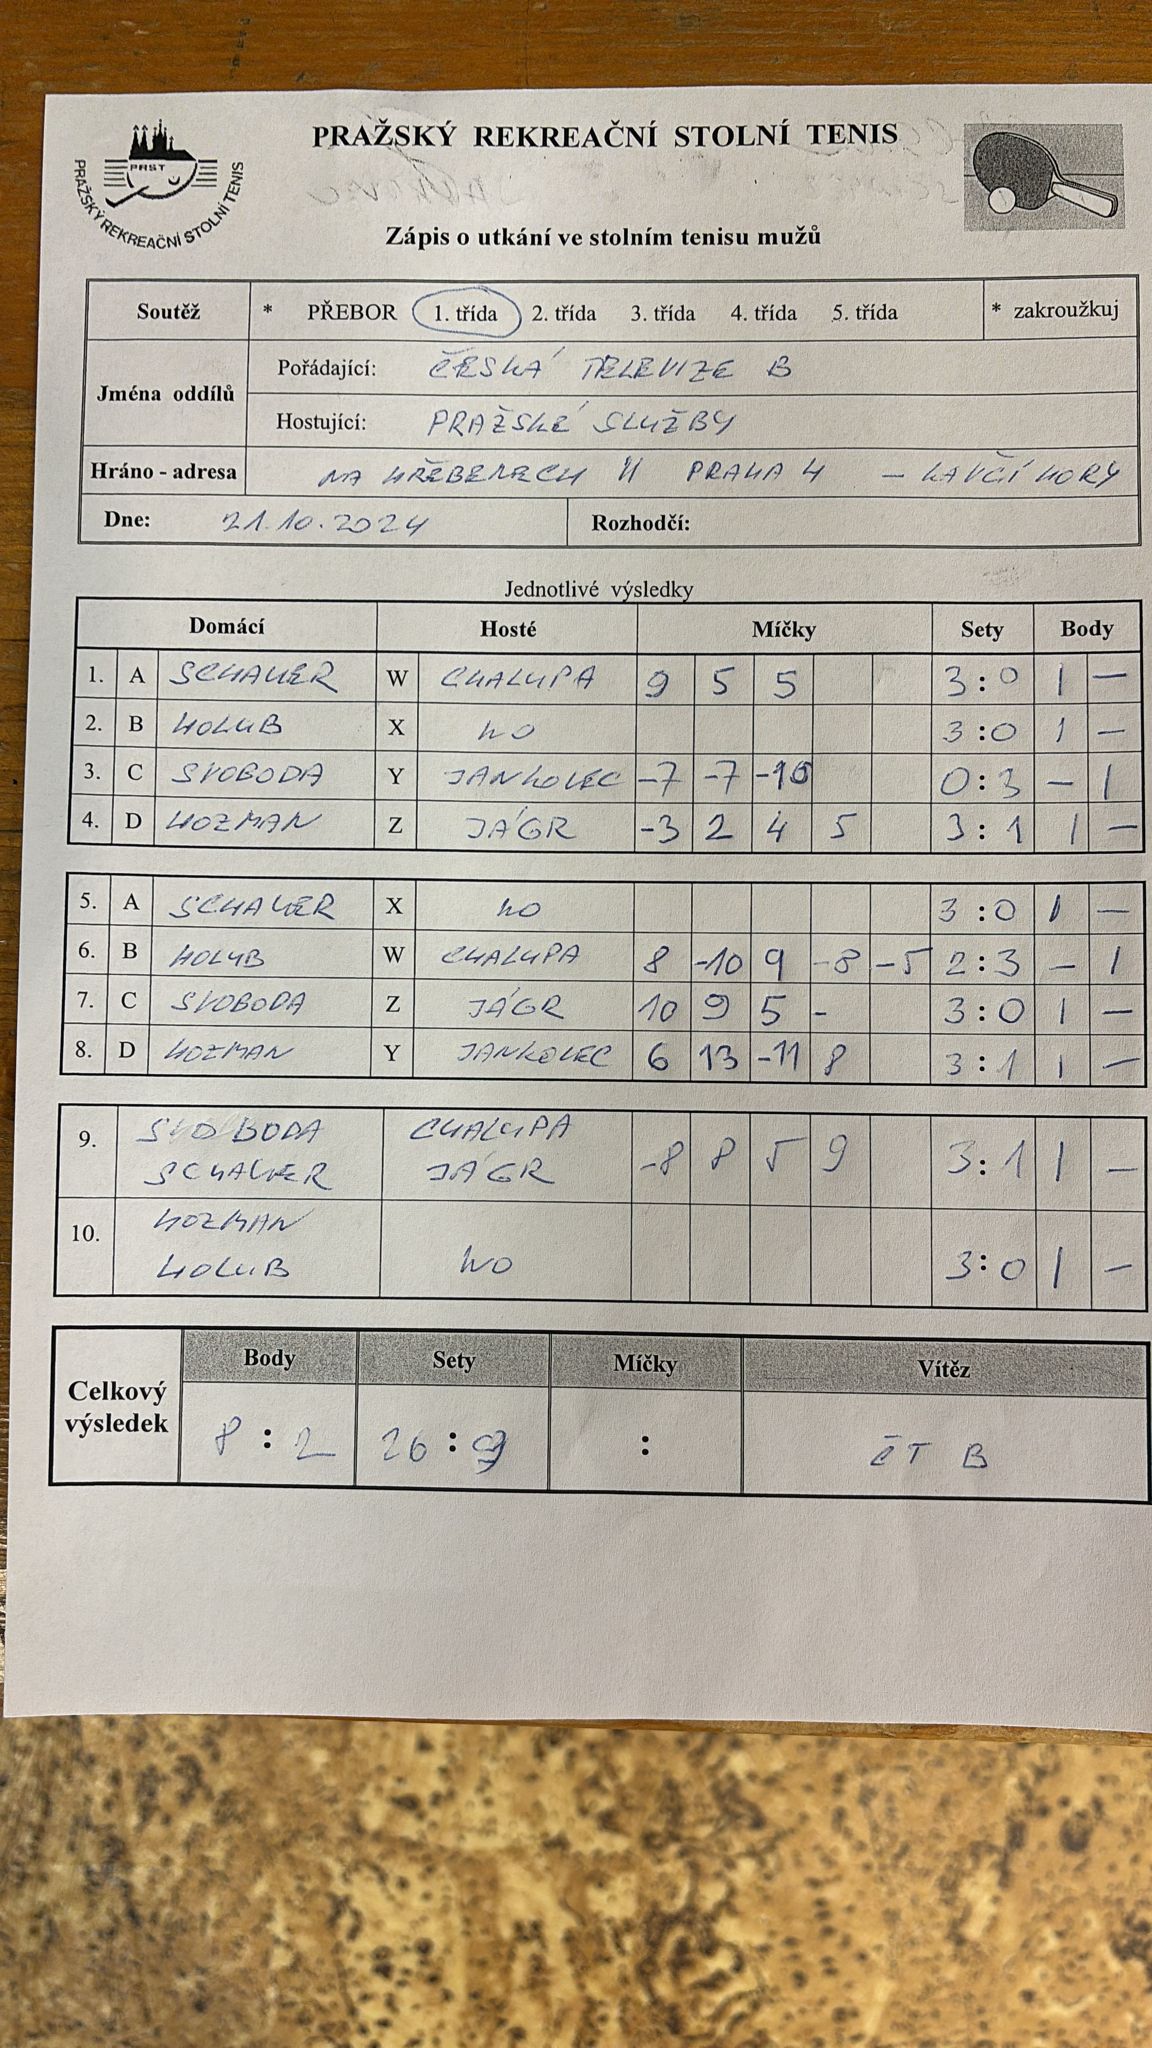 PRAŽSKÝ REKREAČNÍ STOLNÍ TENIS
PRST
PRAŽSKÝ REKREAČNÍ STOLNÍ TENIS
Zápis o utkání ve stolním tenisu mužů
Soutěž * PŘEBOR 1. třída 2. třída 3. třída 4. třída 5. třída * zakroužkuj
Jména oddílů
Pořádající: ČESKÁ TELEVIZE B
Hostující: PRAŽSKÉ SLUŽBY
Hráno - adresa NA HŘEBENECH II PRAHA 4 - KAVČÍ HORY
Dne: 21.10.2024 Rozhodčí:
Jednotlivé výsledky
Domácí Hosté Míčky Sety Body
1. A SCHAUER W CHALUPA 9 5 5 3:0 1 -
2. B HOLUB X WO 3:0 1 -
3. C SVOBODA Y JANKOVEC -7 -7 0:3 - 1
4. D HOZMAN Z JÁGR -3 2 4 5 3:1 1 -
5. A SCHAUER X WO 3:0 1 -
6. B HOLUB W CHALUPA 8 -10 9 -8 -5 2:3 - 1
7. C SVOBODA Z JÁGR 10 9 5 - 3:0 1 -
8. D HOZMAN Y JANKOVEC 6 13 -11 8 3:1 1 -
9. SVOBODA CHALUPA
SCHAUER JÁGR -8 8 5 9 3:1 1 -
10. HOZMAN
HOLUB WO 3:0 1 -
Celkový výsledek
Body Sety Míčky Vítěz
8 : 2 26 : 9 : ČT B